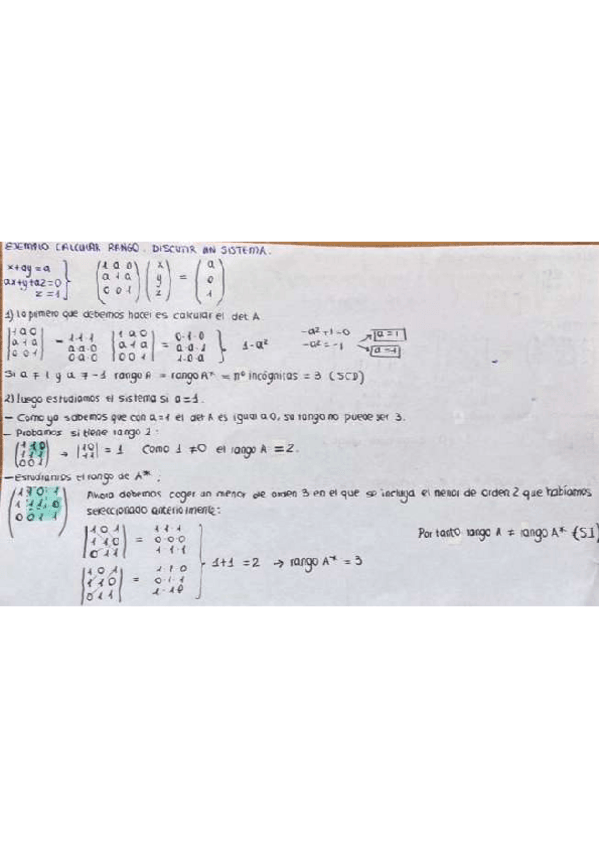 EJEMPLO CALCULAR RANGO. DISCUTIR UN SISTEMA.
x+ay=a
ax+y+az=0
z=1
(1 a 0 / a 1 a / 0 0 1) (x / y / z) = (a / 0 / 1)
1) Lo primero que debemos hacer es calcular el det A
|1 a 0 / a 1 a / 0 0 1| = 1·1·1 / a·a·0 / 0·a·0 |1 a 0 / a 1 a / 0 0 1| = 0·1·0 / a·a·1 / 1·0·a } 1-a² -a²+1=0 -a²=-1 a=1 a=-1
Si a ≠ 1 y a ≠ -1 rango A = rango A* = nº incógnitas = 3 (SCD)
2) Luego estudiamos el sistema si a=1.
- Como ya sabemos que con a=1 el det A es igual a 0, su rango no puede ser 3.
- Probamos si tiene rango 2:
(1 1 0 / 1 1 1 / 0 0 1) → |1 0 / 1 1| = 1 Como 1 ≠ 0 el rango A = 2.
- Estudiamos el rango de A*:
(1 1 0 1 / 1 1 1 0 / 0 0 1 1) Ahora debemos coger un menor de orden 3 en el que se incluya el menor de orden 2 que habíamos
seleccionado anteriormente:
|1 0 1 / 1 1 0 / 0 1 1| = 1·1·1 / 0·0·0 / 1·1·1
|1 0 1 / 1 1 0 / 0 1 1| = 1·1·0 / 0·1·1 / 1·1·0 } 1+1=2 → rango A* = 3
Por tanto rango A ≠ rango A* (SI)